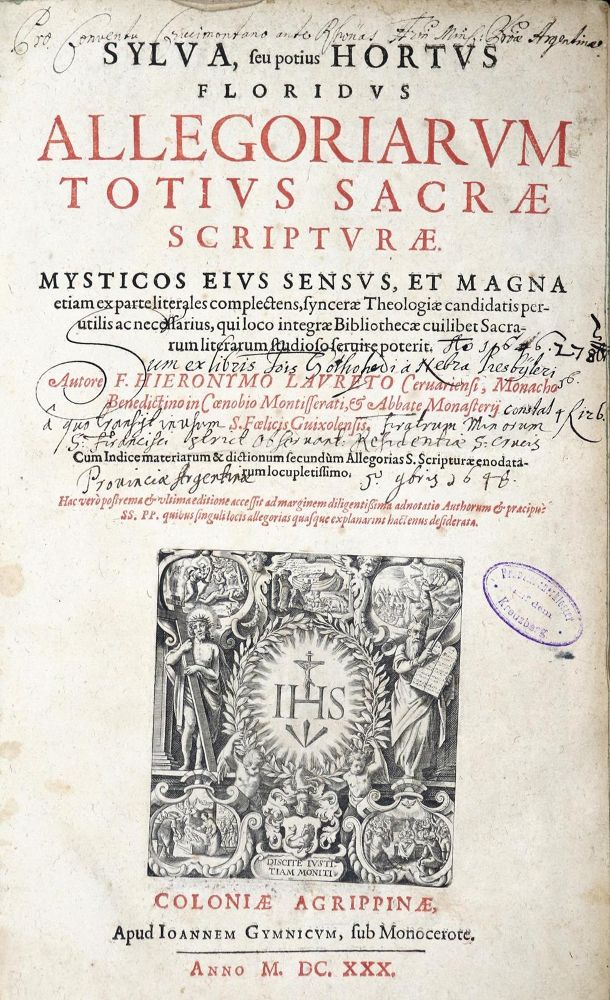 Pro Conventu Crucimontano ante Rhenas Frm Min: Proae Argentinae
SYLVA, seu potius HORTVS
FLORIDVS
ALLEGORIARVM
TOTIVS SACRÆ
SCRIPTVRÆ.
MYSTICOS EIVS SENSVS, ET MAGNA
etiam ex parte literales complectens, synceræ Theologiæ candidatis per-
utilis ac necessarius, qui loco integræ Bibliothecæ cuilibet Sacra-
rum literarum studioso seruire poterit.
Ao 1646.
Sum ex libris Jois Gothofredi à Nebra Presbyteri
Autore F. HIERONYMO LAVRETO Ceruariensi, Monacho
Benedictino in Cœnobio Montisserati, & Abbate Monasterij
constat 4 R 126.
S. Fœlicis Guixolensis.
â quo transijt in usum fratrum Minorum
S. Francisci strict Observant: Residentiæ S. Crucis
Cum Indice materiarum & dictionum secundùm Allegorias S. Scripturæ enodata-
rum locupletissimo.
Provinciæ Argentinæ 5 9bris 1648.
Hac verò postrema & vltima editione accessit ad marginem diligentissima adnotatio Authorum & præcipuè
SS. PP. quibus singuli locis allegorias quasque explanarint hactenus desiderata.
auf dem
Kreuzberg
IHS
DISCITE IVSTI-
TIAM MONITI
COLONIÆ AGRIPPINÆ,
Apud IOANNEM GYMNICVM, sub Monocerote.
ANNO M. DC. XXX.